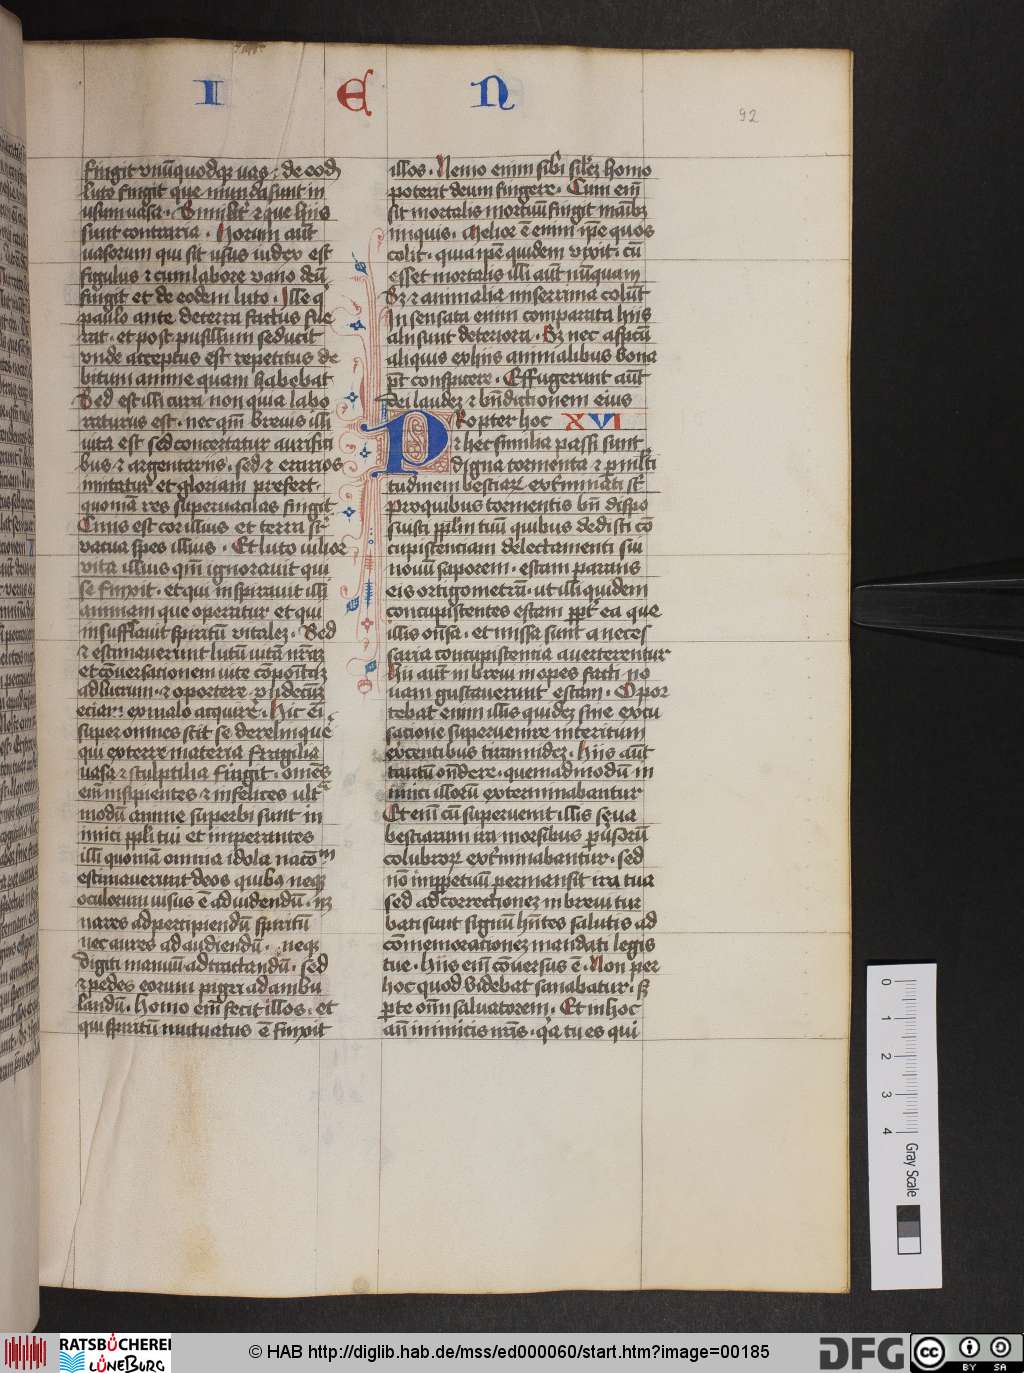 I E N
92
fingit vnūquodqꝫ vas · de eodē
luto fingit que munda sunt in
usum uasa · Similitͬ ⁊ que hiis
sunt contraria · Horum aūt
uasorum qui sit usus iudex est
figulus ⁊ cum labore uano deū
fingit et de eodem luto · Ille qͥ
paulo ante de terra factus fue
rat · et post pusillum se ducit
vnde acceptus est repetitus de
bitum anime quam habebat
Sed est illi cura non quia labo
raturus est · nec qm̄ breuis illi
uita est sed concertatur aurifici
bus ⁊ argentariis · sed ⁊ erarios
imitatur et gloriam prefert ·
quoniā res superuacuas fingit
Cinis est cor illius et terra sr̄
vacua spes illius · Et luto uilior
vita illius qm̄ ignorauit qui
se finxit · et qui inspirauit illi
animam que operatur et qui
insufflauit spiritū vitalez · Sed
⁊ estimauerunt lusū uitā nr̄aꝫ
et cōuersacionem uite cōpoītāꝫ
ad lucrum · ⁊ oportere vndecūꝫ
eciam ex malo acquirē · Hic eī
super omnes scit se derelinqūe
qui ex terre materia fragilia
uasa ⁊ sculptilia fingit · omēs
em̄ insipientes ⁊ infelices ultͣ
modū anime superbi sunt in
imici ppli tui et imperantes
illi quoniā omnia idola nacōm
estimauerunt deos quibꝫ neqꝫ
oculorum uisus ē ad uidendū · nꝫ
nares ad percipiendū spiritū
nec aures ad audiendū · neqꝫ
digiti manuū ad tractandū · sed
⁊ pedes eorum pigri ad ambu
landū · Homo em̄ fecit illos · et
qui spiritū mutuatus ē finxit
illos · Nemo enim sibi silēꝫ homo
poterit deum fingere · Cum em̄
sit mortalis mortuū fingit māibꝫ
iniquis · Melior ē enim ipe quos
colit · quia ipē quidem vixit · cū
esset mortalis illi aūt nūquam
Sꝫ ⁊ animalia miserrima colūt
Insensata enim comparata hiis
aliis sunt deteriora · Sꝫ nec aspectū
aliquis ex hiis animalibus bona
pt̄ conspicere · Effugerunt aūt
dei laudeꝫ ⁊ bn̄dictionem eius
Propter hoc XVI
⁊ hec similia passi sunt
digna tormenta ⁊ p mlti
tudinem bestiaꝝ extmīati sͭ
pro quibus tormentis bn̄ dispo
suisti pplm tuū quibus dedisti cō
cupiscenciam delectamenti sui
nouū saporem · escam parans
eis ortigometrā · ut illi quidem
concupiscentes escam ppt̄ ea que
illis on̄sa · et missa sunt a neces
saria concupiscentia auerterentur
Hii aūt in breui inopes facti no
uam gustauerunt escam · Opor
tebat enim illis quidez sine excu
sacione superuenire interitum
exēcentibus tirannidez · Hiis aūt
tantū on̄dere · quemadmodū in
imici illorū exterminabantur
Et em̄ cū superuenit illis seua
bestiarum ira morsibus puersorū
colubroꝝ extmīnabantur · sed
nō inppetuū permansit ira tua
sed ad correctionez in breui tur
bati sunt signū hn̄tes salutis ad
cōmemoracionez mandati legis
tue · Hiis em̄ cōuersus ē · Non per
hoc quod videbat sanabatur · sꝫ
p te om̄ saluatorem · Et in hoc
aūt inimicis nr̄is · qa tu es qui
0 1 2 3 4
Gray Scale
RATSBÜCHEREI
LÜNEBURG
© HAB http://diglib.hab.de/mss/ed000060/start.htm?image=00185
DFG
cc BY SA